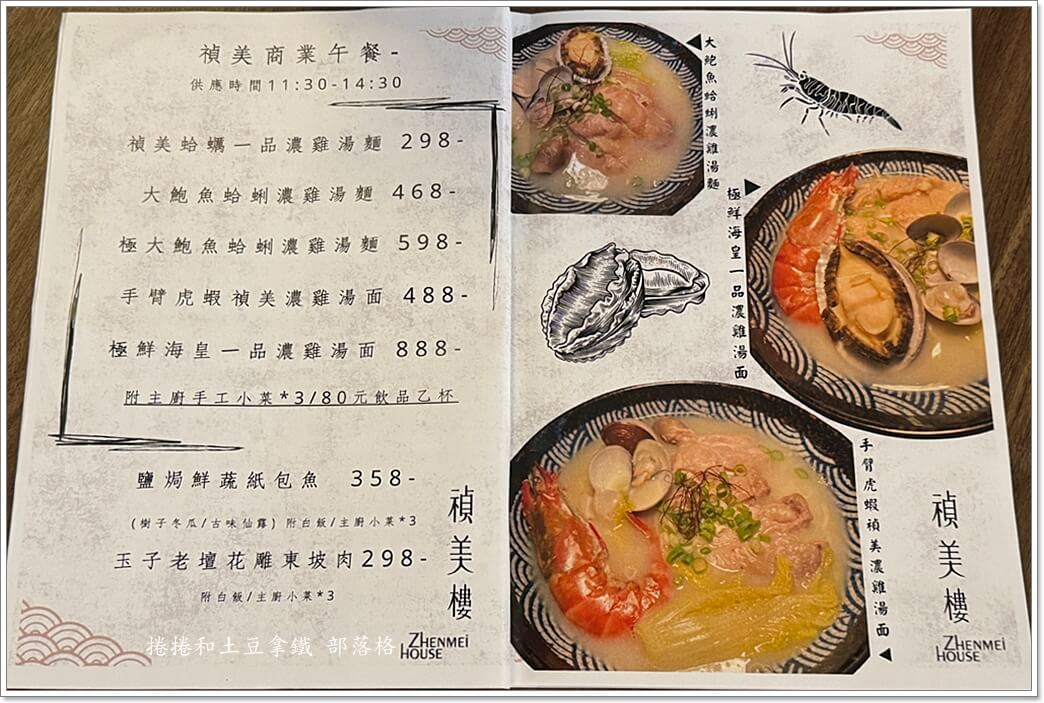 禎美商業午餐-
供應時間11:30-14:30
禎美蛤蠣一品濃雞湯麵 298-
大鮑魚蛤蜊濃雞湯麵 468-
極大鮑魚蛤蜊濃雞湯麵 598-
手臂虎蝦禎美濃雞湯面 488-
極鮮海皇一品濃雞湯面 888-
附主廚手工小菜*3/80元飲品乙杯
鹽焗鮮蔬紙包魚 358-
(樹子冬瓜/古味仙露) 附白飯/主廚小菜*3
玉子老壇花雕東坡肉298-
附白飯/主廚小菜*3
禎美樓
ZHENMEI
HOUSE
捲捲和土豆拿鐵 部落格
大鮑魚蛤蜊濃雞湯麵
極鮮海皇一品濃雞湯面
手臂虎蝦禎美濃雞湯面
禎美樓
ZHENMEI
HOUSE